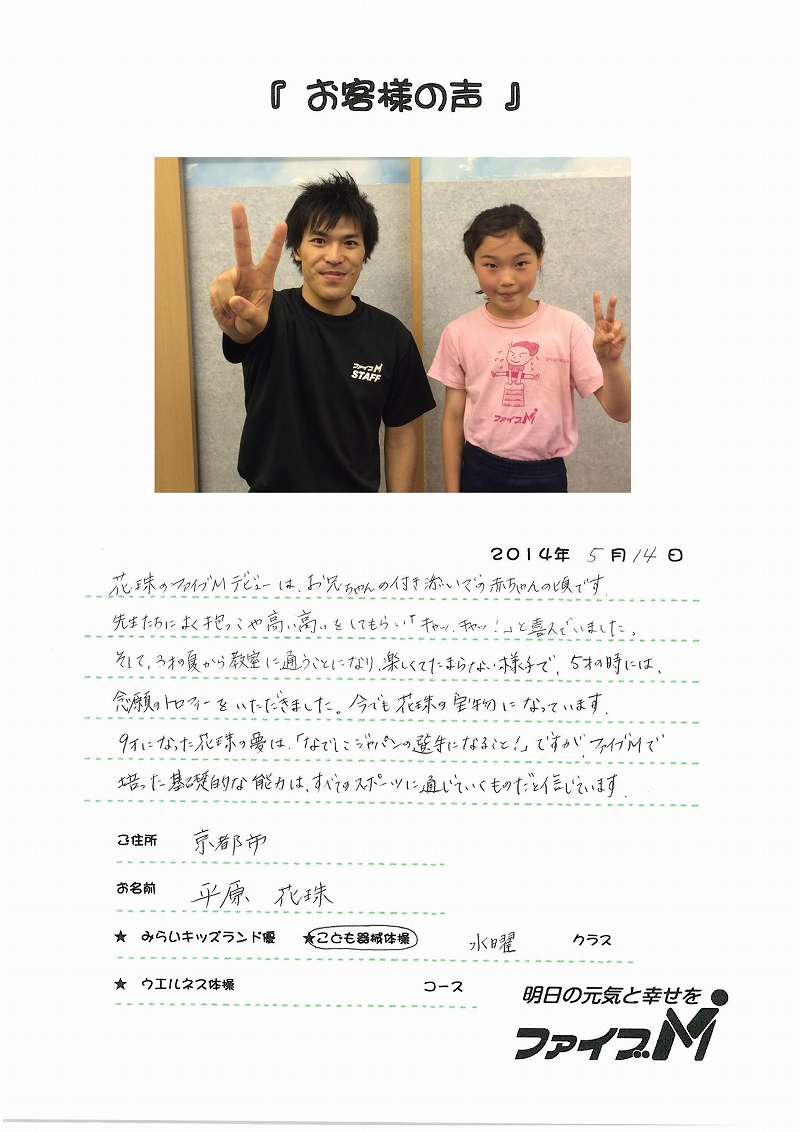 『 お客様の声 』
ファイブM
STAFF
ファイブM
2014年 5月14日
花珠のファイブMデビューは、お兄ちゃんの付き添いでの赤ちゃんの頃です.
先生たちによく抱っこや高い高いをしてもらい「キャッ.キャッ!」と喜んでいました。
そして、3才の夏から教室に通うことになり.楽しくてたまらない様子で、5才の時には、
念願のトロフィーをいただきました。今でも花珠の宝物になっています.
9才になった花珠の夢は、「なでしこジャパンの選手になること!」ですが、ファイブMで
培った基礎的な能力は、すべてのスポーツに通じていくものだと信じています.
ご住所 京都市
お名前 平原 花珠
★ みらいキッズランド優 ★こども器械体操 水曜 クラス
★ ウエルネス体操 コース
明日の元気と幸せを
ファイブM